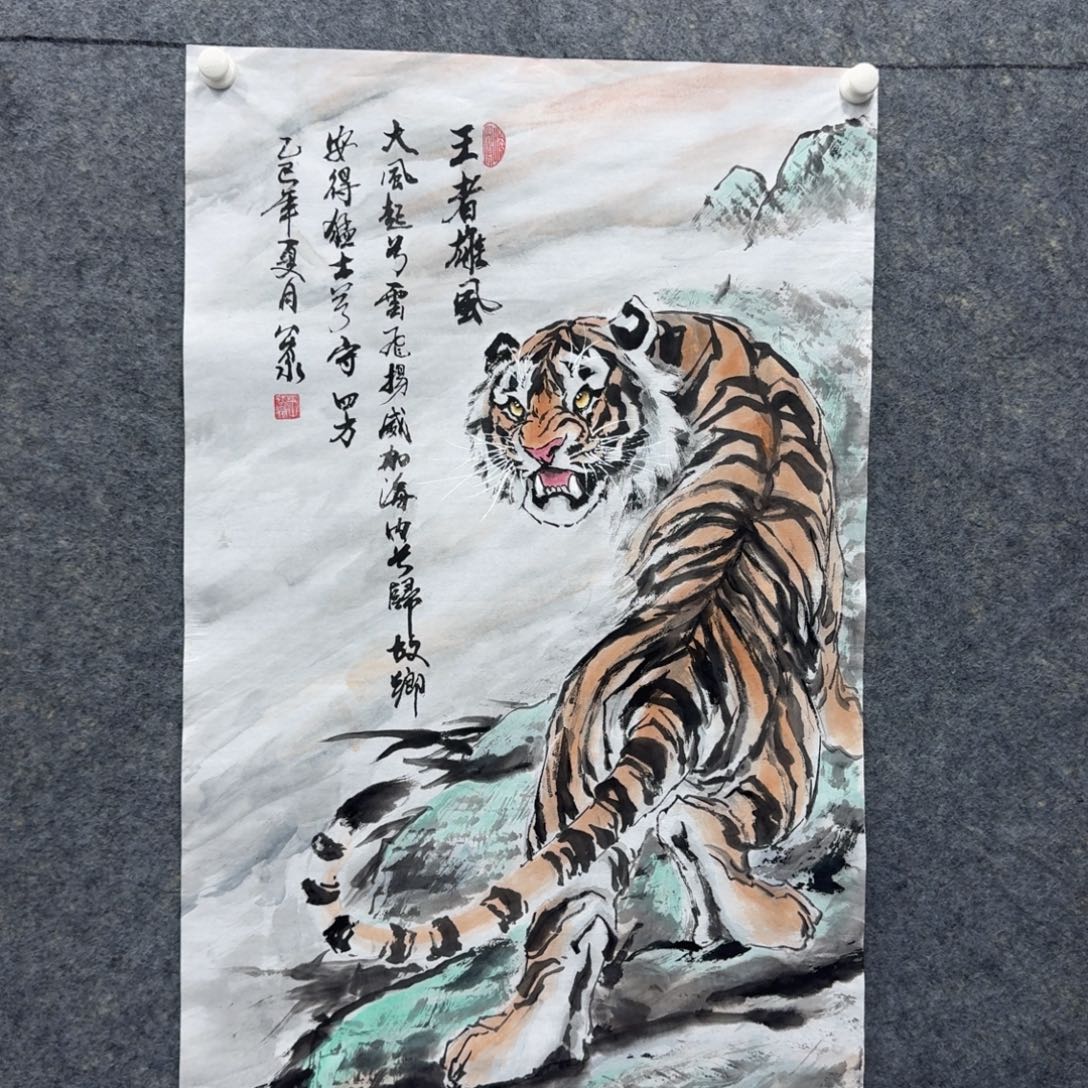 王者雄風
大風起兮雲飛揚威加海内兮歸故鄉
安得猛士兮守四方
乙巳年夏月